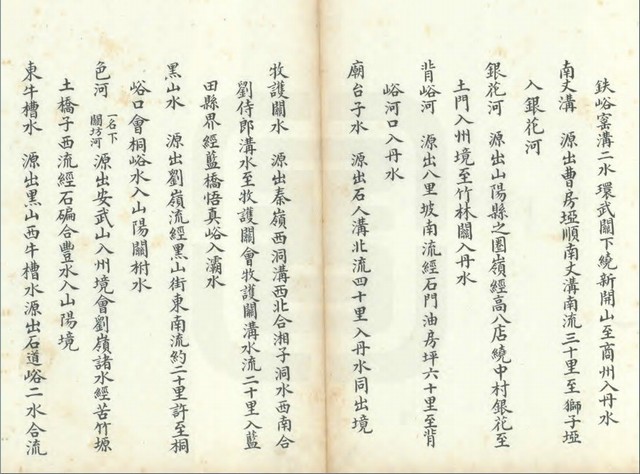 鉄峪窯溝二水環武關下繞新開山至商州入丹水
南丈溝　源出曹房埡順南丈溝南流三十里至獅子埡
入銀花河
銀花河　源出山陽縣之圏嶺經高八店繞中村銀花至
土門入州境至竹林關入丹水
背峪河　源出八里坡南流經石門油房坪六十里至背
峪河口入丹水
廟台子水　源出石人溝北流四十里入丹水同出境
牧護關水　源出秦嶺西洞溝西北合湘子洞水西南合
劉侍郎溝水至牧護關會牧護關溝水流二十里入藍
田縣界經藍橋悟真峪入灞水
黑山水　源出劉嶺流經黑山街東南流約二十里許至桐
峪口會桐峪水入山陽關柎水
色河　一名下關坊河　源出安武山入州境會劉嶺諸水經苦竹塬
土橋子西流經石碥合豐水入山陽境
東牛槽水　源出黑山西牛槽水源出石道峪二水合流